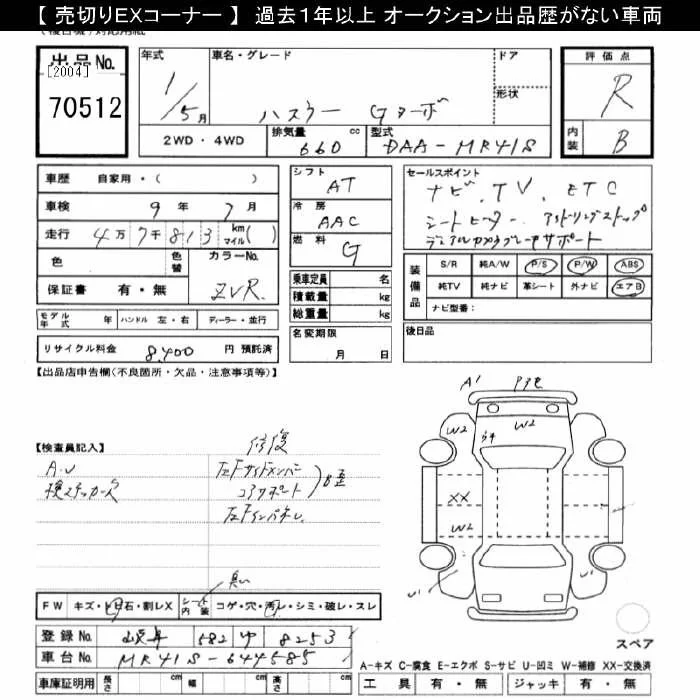 【 売切りEXコーナー 】 過去１年以上 オークション出品歴がない車両
出品No.
[2004]
70512
年式
1/5月
車名・グレード
ハスラー Gターボ
ドア
形状
評価点
R
内装
B
2WD・4WD
排気量 660 cc
型式 DAA-MR41S
車歴 自家用・( )
車検 9年7月
走行 4万7千813 km マイル( )
色
色替
カラーNo. ZVR
保証書 有・無
シフト AT
冷房 AAC
燃料 G
乗車定員 名
積載量 kg
総重量 kg
セールスポイント
ナビ、TV、ETC
シートヒーター アイドリングストップ
デュアルカメラブレーキサポート
装備品
S/R 純A/W P/S P/W ABS
純TV 純ナビ 革シート 外ナビ エアB
ナビ型番：
モデル年式 年 ハンドル 左・右 ディーラー・並行
リサイクル料金 8,400 円 預託済
名変期限 月 日
後日品
【出品店申告欄(不良箇所・欠品・注意事項等)】
【検査員記入】
A.U
修復
左Fサイドメンバー
コアサポート
左Fインパネル
A1
W2
W2
XX
W2
U1
U1
FW キズ・トビ石・割レX
シート内装 コゲ・穴・汚レ・シミ・破レ・スレ
臭い
登録No. 岐阜 582 ゆ 8253
車台No. MR41S-644585
車庫証明用 長さ cm 幅 cm 高さ cm
スペア
A-キズ C-腐食 E-エクボ S-サビ U-凹ミ W-補修 XX-交換済
工具 有・無 ジャッキ 有・無